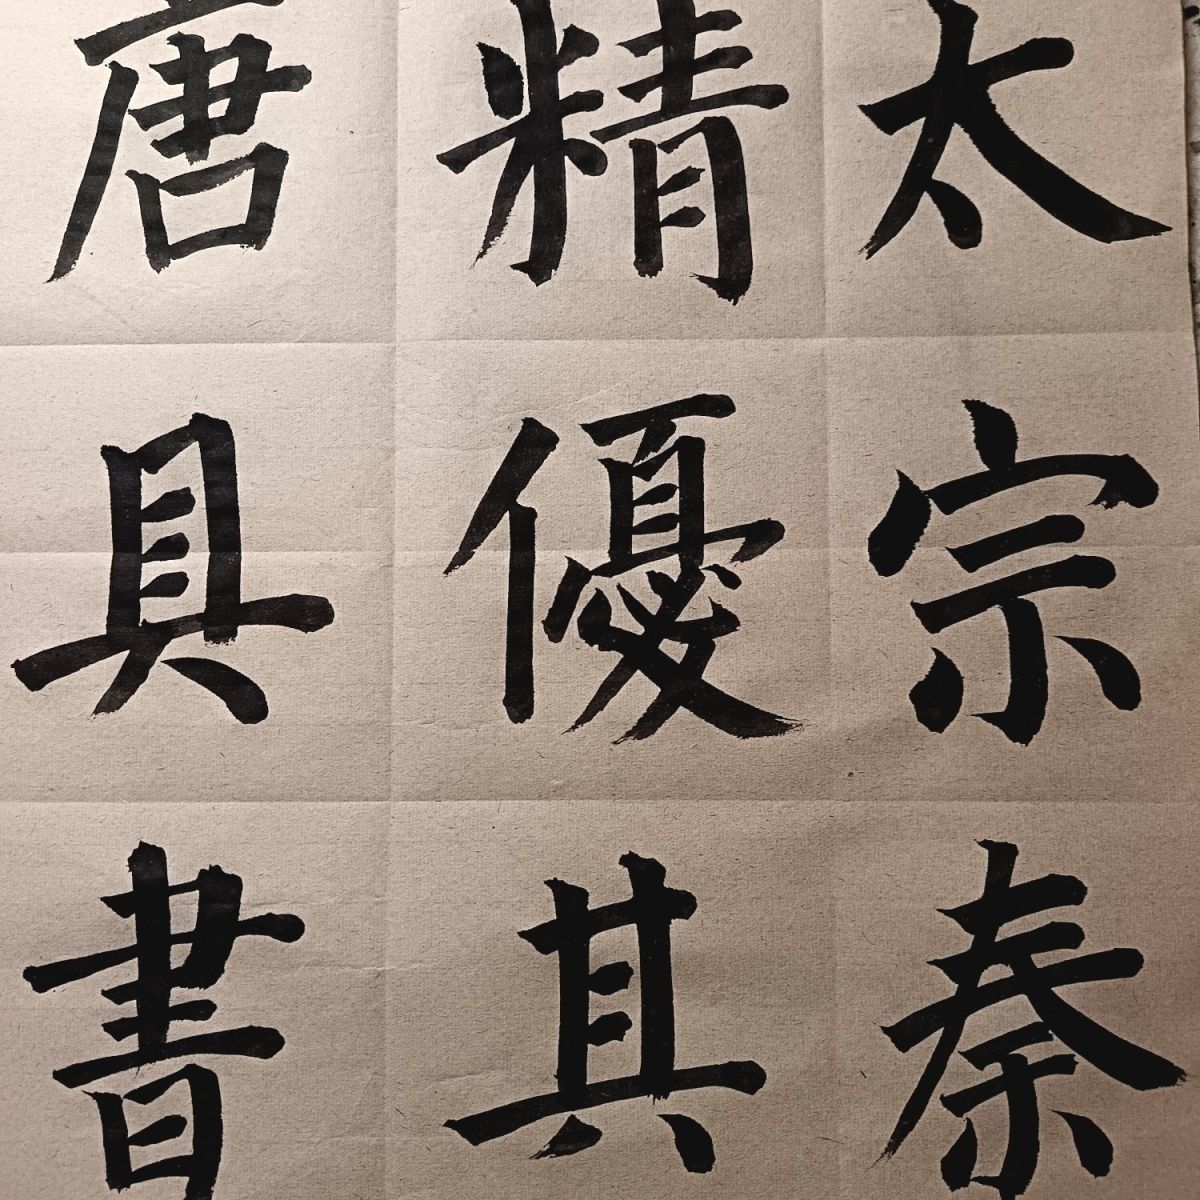 太宗秦
精優其
唐具書